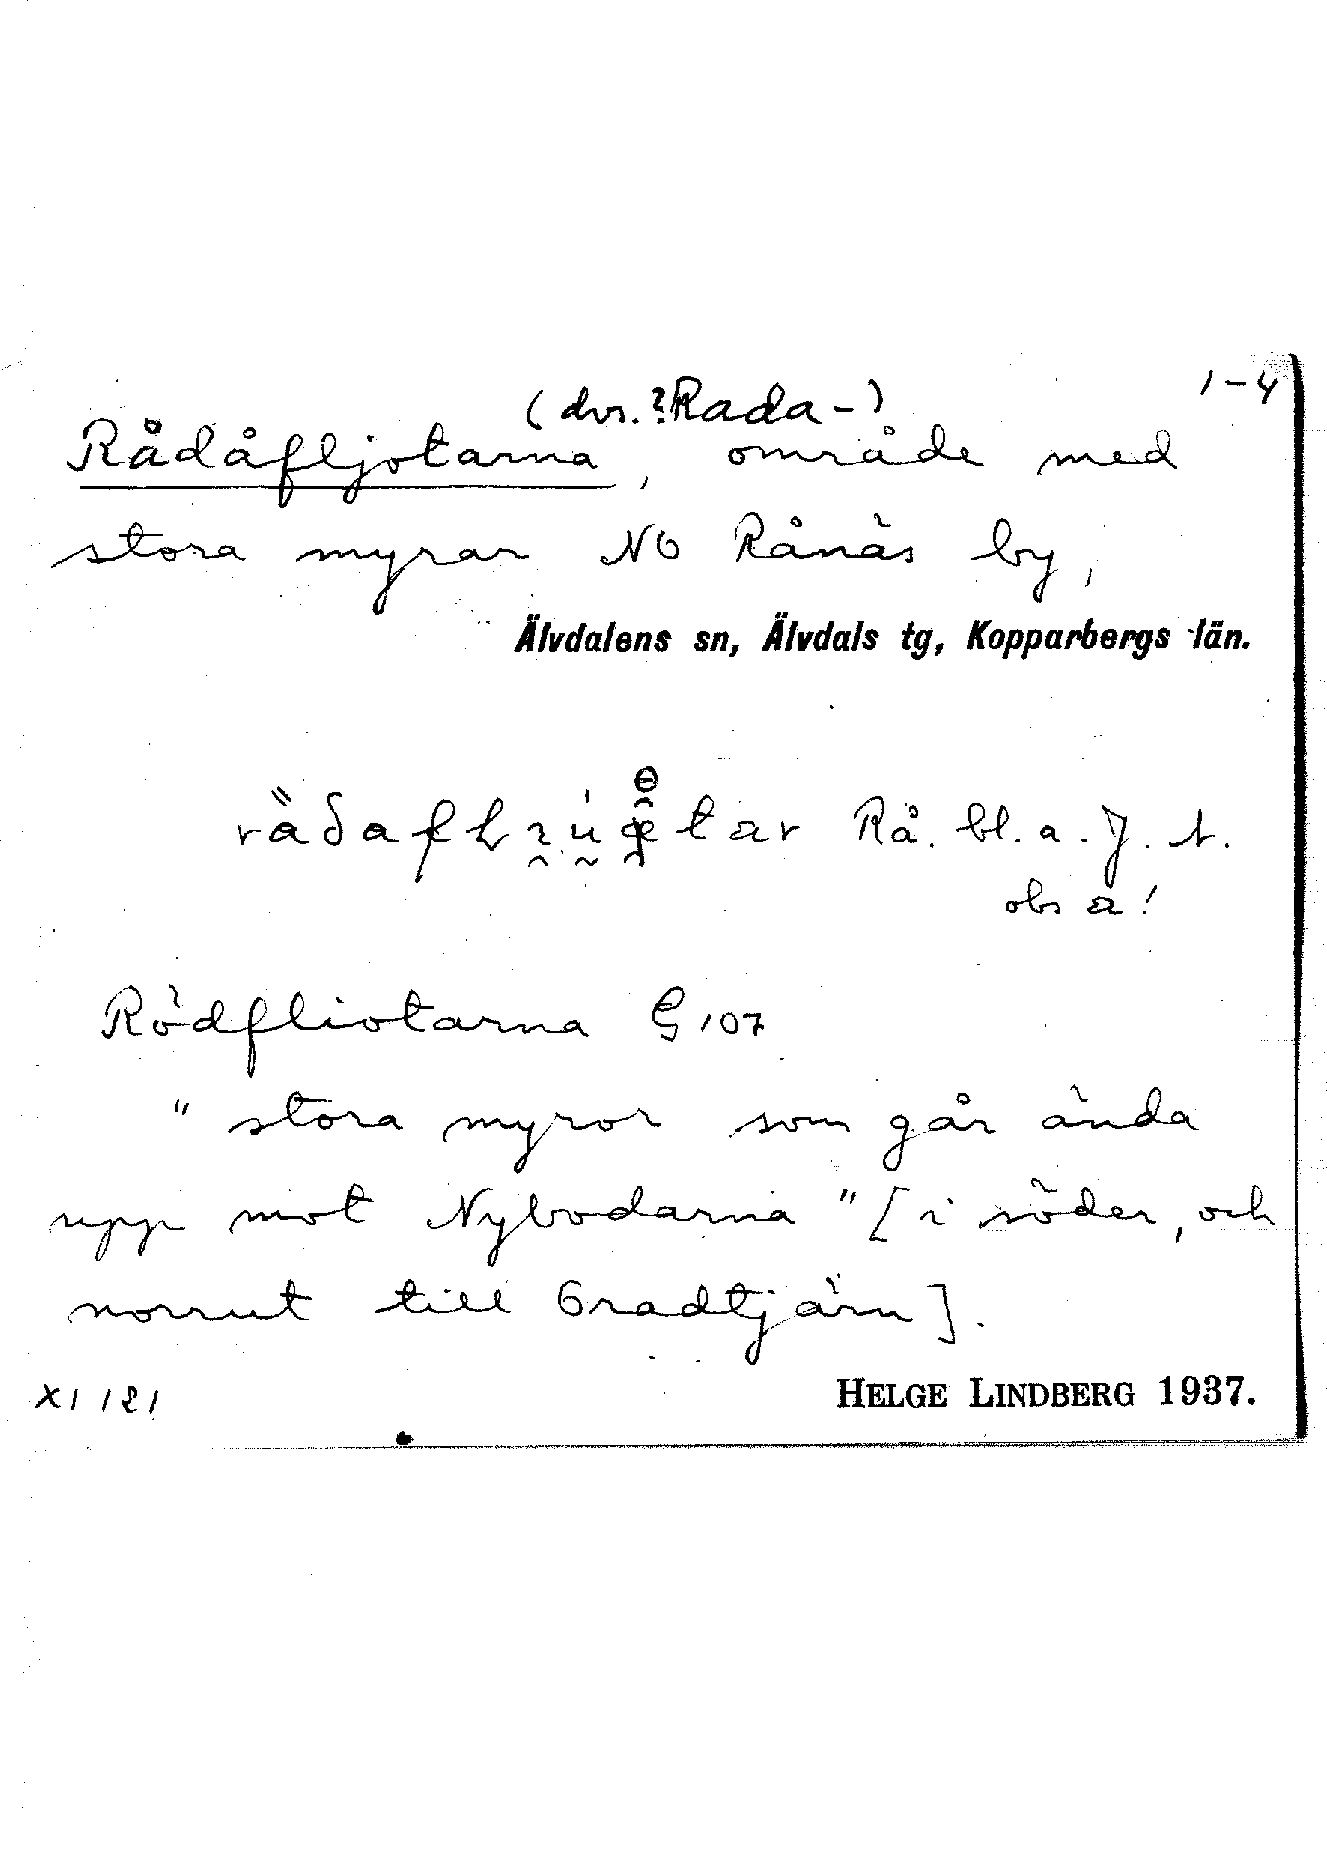 1-4
(dvs. ?Rada-)
Rådåfljotarna, område med
stora myrar NO Rånäs by,
Älvdalens sn, Älvdals tg, Kopparbergs län.
Rå. bl. a. J. t.
obs a!
Rödfliotarna G 107
"stora myror som går ända
upp mot Nybodarna" [i söder, och
norrut till Gradtjärn].
XI 121
HELGE LINDBERG 1937.